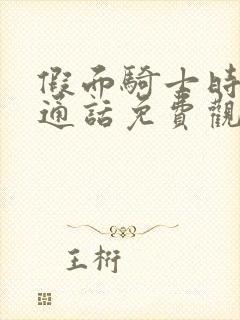 假而騎士時
通話免費觀
王桁